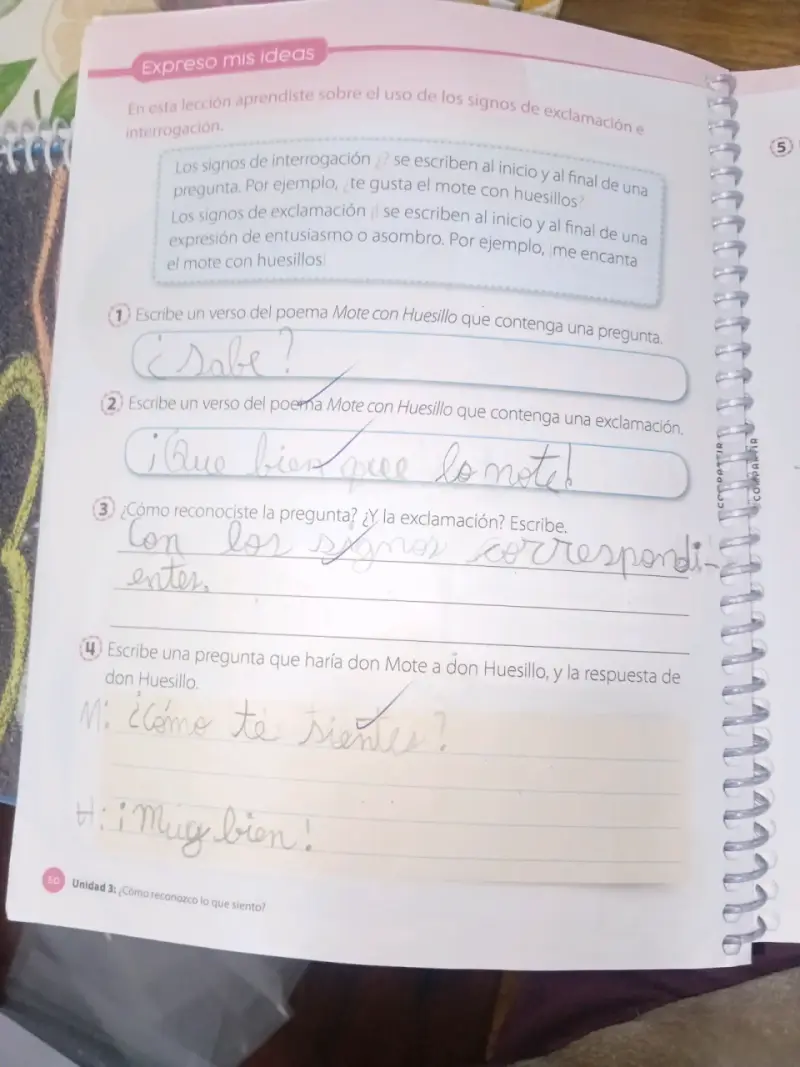 Expreso mis ideas
En esta lección aprendiste sobre el uso de los signos de exclamación e
interrogación.
Los signos de interrogación ¿? se escriben al inicio y al final de una
pregunta. Por ejemplo, ¿te gusta el mote con huesillos?
Los signos de exclamación ¡! se escriben al inicio y al final de una
expresión de entusiasmo o asombro. Por ejemplo, ¡me encanta
el mote con huesillos!
1 Escribe un verso del poema Mote con Huesillo que contenga una pregunta.
¿Sabe?
2 Escribe un verso del poema Mote con Huesillo que contenga una exclamación.
¡Que bien que lo note!
3 ¿Cómo reconociste la pregunta? ¿Y la exclamación? Escribe.
Con los signos correspondi-
entes.
4 Escribe una pregunta que haría don Mote a don Huesillo, y la respuesta de
don Huesillo.
M: ¿Cómo te sientes?
H: ¡Muy bien!
Unidad 3: ¿Cómo reconozco lo que siento?
5
COMPARTIR